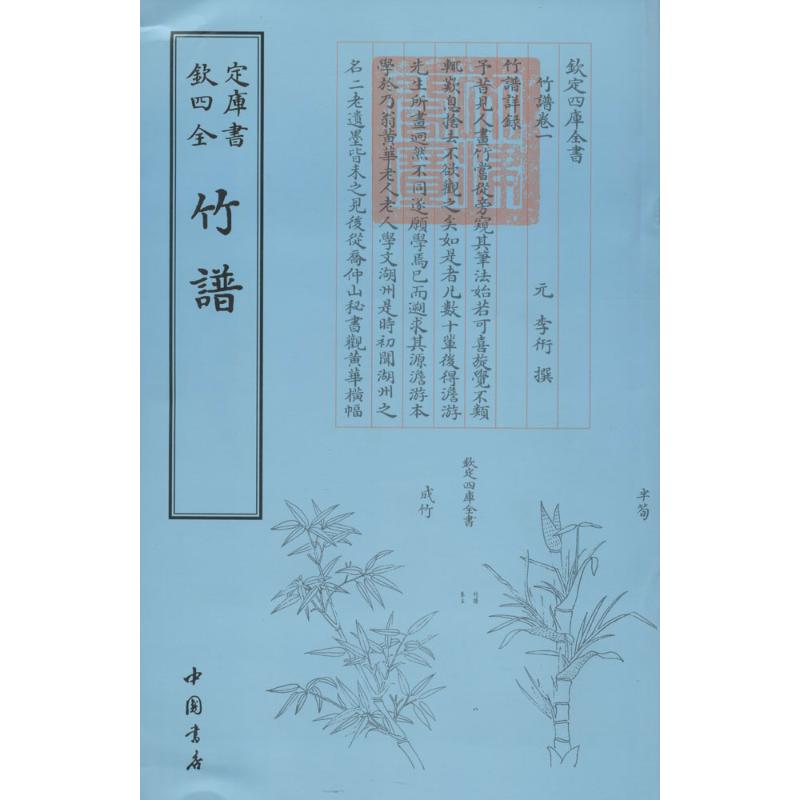 欽定
四庫
全書
竹譜
中國書店
欽定四庫全書
竹譜卷一
元 李衎 撰
竹譜詳録
予昔見人畫竹嘗從旁窺其筆法始若可喜旋覺不類
輒歎息捨去不欲觀之矣如是者凡數十輩後得澹游
先生所畫迥然不同遂願學焉已而遡求其源澹游本
學於乃翁黄華老人老人學文湖州是時初聞湖州之
名二老遺墨皆未之見後從喬仲山秘書觀黄華橫幅
半筍
欽定四庫全書
竹譜
成竹